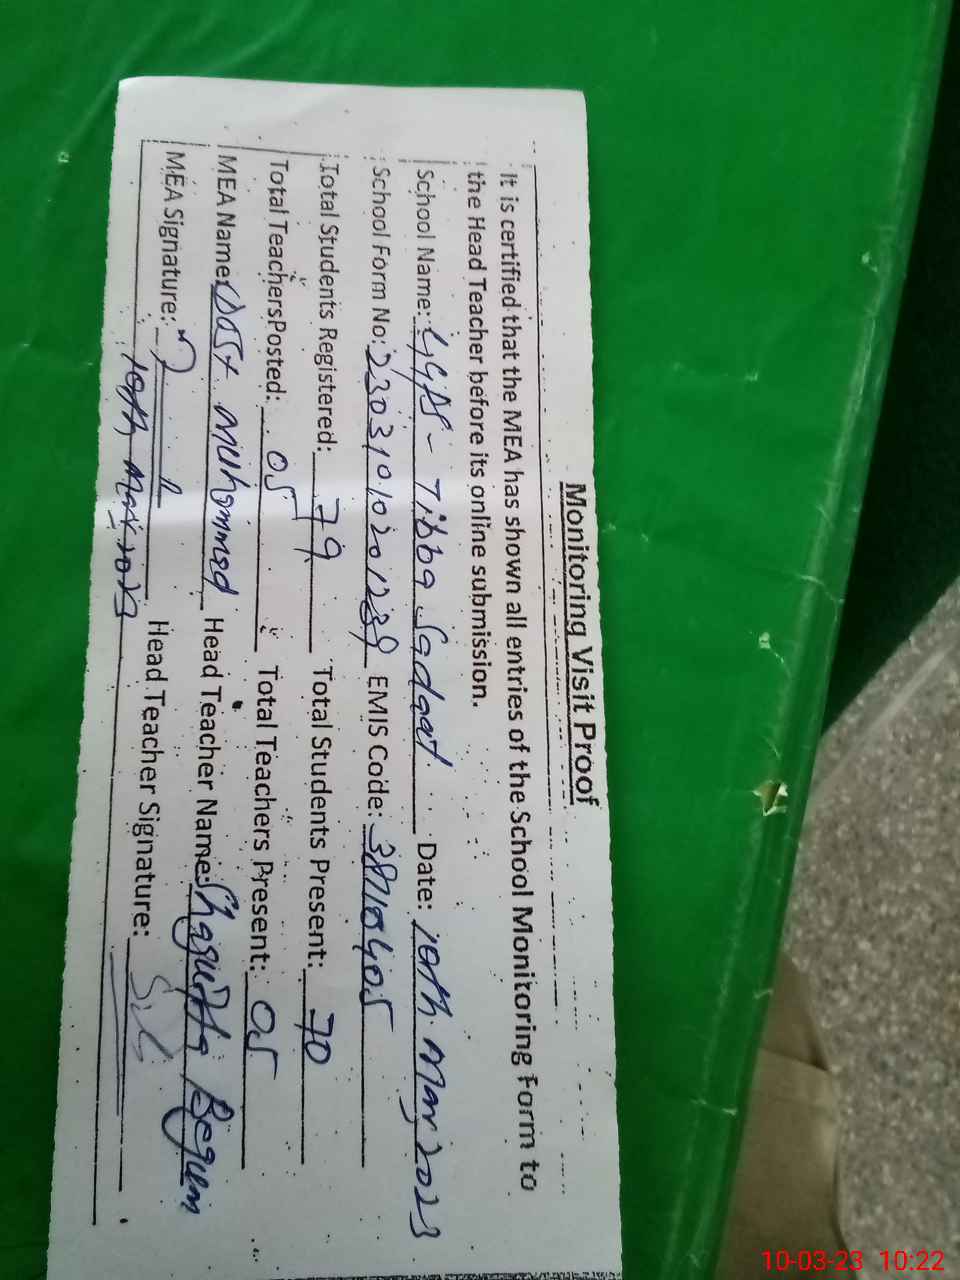 Monitoring Visit Proof
It is certified that the MEA has shown all entries of the School Monitoring Form to
the Head Teacher before its online submission.
School Name: GGPS - Tibba Sadaat Date: 10th Mar, 2023
School Form No: 23031010201239 EMIS Code: 38710405
Total Students Registered: 79 Total Students Present: 70
Total Teachers Posted: 05 Total Teachers Present: 05
MEA Name: Dost Muhammad Head Teacher Name: Shagufta Begum
MEA Signature: Head Teacher Signature:
10th Mar 2023
10-03-23 10:22